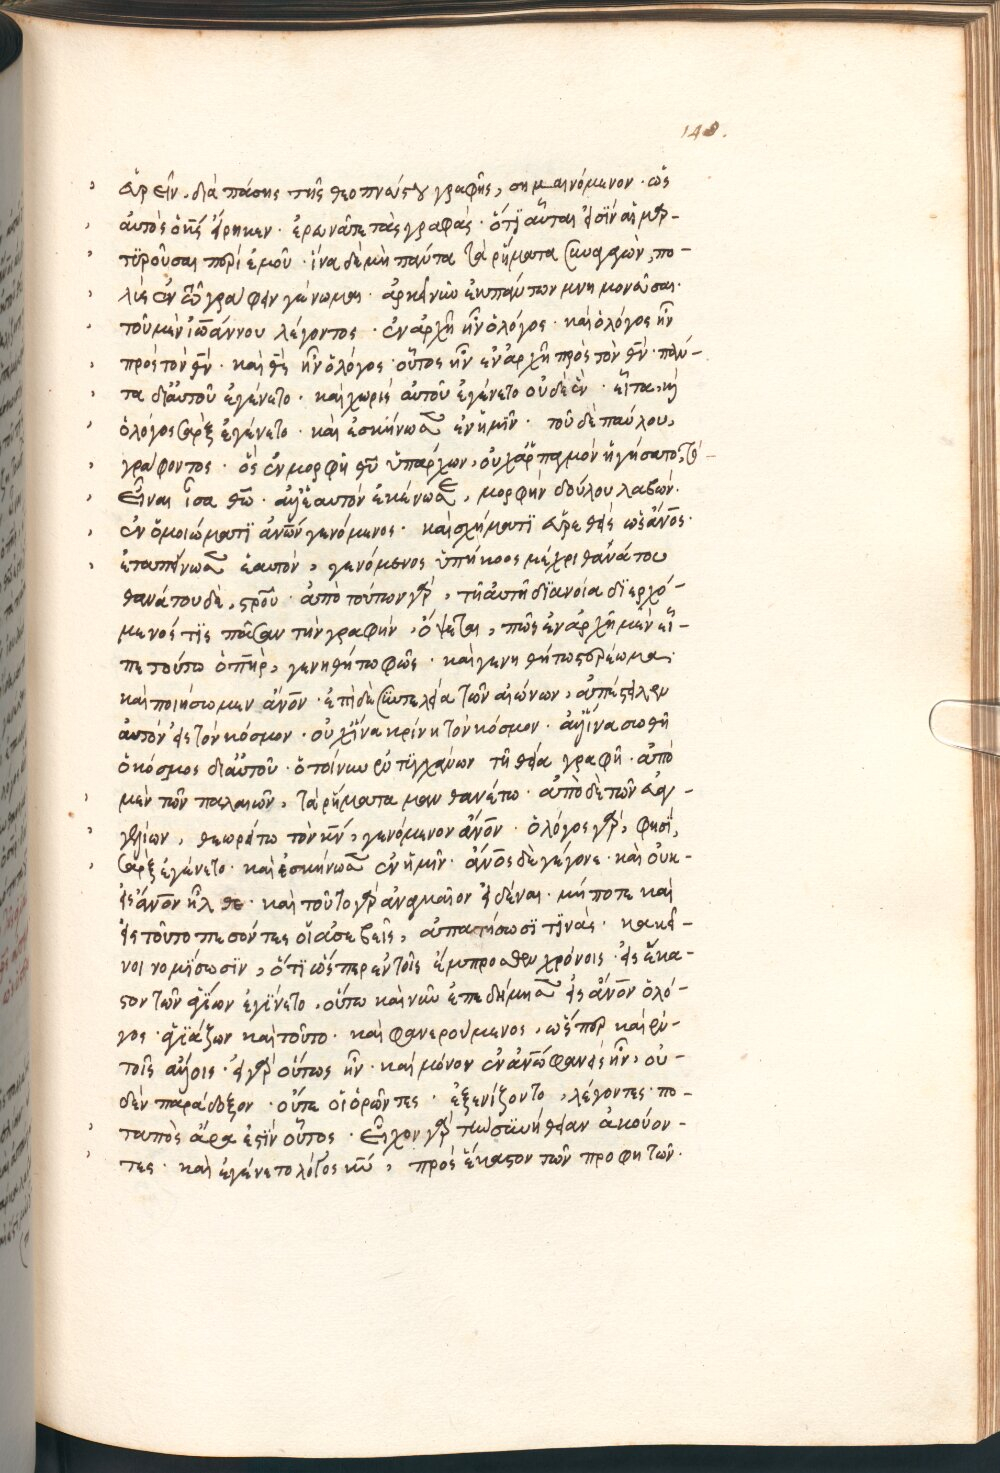 148.
εὑρεῖν, διὰ πάσης τῆς θεοπνεύστου γραφῆς, σημαινόμενον· ὡς
αὐτὸς ὁ κ̅ς̅ εἴρηκεν· ἐρευνᾶτε τὰς γραφάς· ὅτι αὗταί εἰσιν αἱ μαρ-
τυροῦσαι περὶ ἐμοῦ· ἵνα δὲ μὴ πάντα τὰ ῥήματα συνάγων, πο-
λὺς ἐν τῷ γράφειν γένωμαι· ἀρκεῖ νῦν ἐκ πάντων μνημονεῦσαι·
τοῦ μὲν ἰωάννου λέγοντος· ἐν ἀρχῇ ἦν ὁ λόγος· καὶ ὁ λόγος ἦν
πρὸς τὸν θ̅ν̅· καὶ θ̅ς̅ ἦν ὁ λόγος· οὗτος ἦν ἐν ἀρχῇ πρὸς τὸν θ̅ν̅· πάν-
τα δι' αὐτοῦ ἐγένετο· καὶ χωρὶς αὐτοῦ ἐγένετο οὐδὲ ἕν· εἶτα, καὶ
ὁ λόγος σὰρξ ἐγένετο· καὶ ἐσκήνωσεν ἐν ἡμῖν· τοῦ δὲ παύλου,
γράφοντος· ὃς ἐν μορφῇ θ̅υ̅ ὑπάρχων, οὐχ ἁρπαγμὸν ἡγήσατο, τὸ
εἶναι ἶσα θ̅ω̅· ἀλλ' ἑαυτὸν ἐκένωσε, μορφὴν δούλου λαβών·
ἐν ὁμοιώματι ἀ̅ν̅ω̅ν̅ γενόμενος· καὶ σχήματι εὑρεθεὶς ὡς ἄ̅ν̅ο̅ς̅·
ἐταπείνωσεν ἑαυτὸν, γενόμενος ὑπήκοος μέχρι θανάτου
θανάτου δὲ, σ̅ρ̅ο̅ῦ̅· ἀπὸ τούτων γὰρ, τῇ αὐτῇ διανοίᾳ διερχό-
μενός τις πᾶσαν τὴν γραφὴν, ὄψεται, πῶς ἐν ἀρχῇ μὲν εἶ-
πε τούτῳ ὁ π̅η̅ρ̅, γενηθήτω φῶς· καὶ γενηθήτω στερέωμα·
καὶ ποιήσωμεν ἄ̅ν̅ο̅ν̅· ἐπὶ δὲ συντελείᾳ τῶν αἰώνων, ἀπέστειλεν
αὐτὸν εἰς τὸν κόσμον· οὐχ ἵνα κρίνῃ τὸν κόσμον· ἀλλ' ἵνα σωθῇ
ὁ κόσμος δι' αὐτοῦ· ὁ τοίνυν ἐντυγχάνων τῇ θείᾳ γραφῇ· ἀπὸ
μὲν τῶν παλαιῶν, τὰ ῥήματα μανθανέτω· ἀπὸ δὲ τῶν εὐαγ-
γελίων, θεωρείτω τὸν κ̅ν̅, γενόμενον ἄ̅ν̅ο̅ν̅· ὁ λόγος γὰρ, φησὶ,
σὰρξ ἐγένετο· καὶ ἐσκήνωσεν ἐν ἡμῖν· ἄ̅ν̅ο̅ς̅ δὲ γέγονε· καὶ οὐκ-
εἰς ἄ̅ν̅ο̅ν̅ ἦλθε· καὶ τοῦτο γὰρ ἀναγκαῖον εἰδέναι· μήποτε καὶ
εἰς τοῦτο πεσόντες οἱ ἀσεβεῖς, ἀπατήσωσί τινας· κακεῖ-
νοι νομίσωσιν, ὅτι ὥσπερ ἐν τοῖς ἔμπροσθεν χρόνοις· εἰς ἕκα-
στον τῶν ἁγίων ἐγίνετο, οὕτω καὶ νῦν ἐπεδήμησεν εἰς ἄ̅ν̅ο̅ν̅ ὁ λό-
γος· ἁγιάζων καὶ τοῦτο· καὶ φανερούμενος, ὥσπερ καὶ ἐν
τοῖς ἄλλοις· εἰ γὰρ οὕτως ἦν· καὶ μόνον ἐν ἀ̅ν̅ω̅ φανεὶς ἦν, οὐ-
δὲν παράδοξον· οὔτε οἱ ὁρῶντες· ἐξενίζοντο, λέγοντες· πο-
ταπὸς ἄρα ἐστὶν οὗτος· εἶχον γὰρ τὴν συνήθειαν ἀκούον-
τες· καὶ ἐγένετο λόγος κ̅υ̅, πρὸς ἕκαστον τῶν προφητῶν·